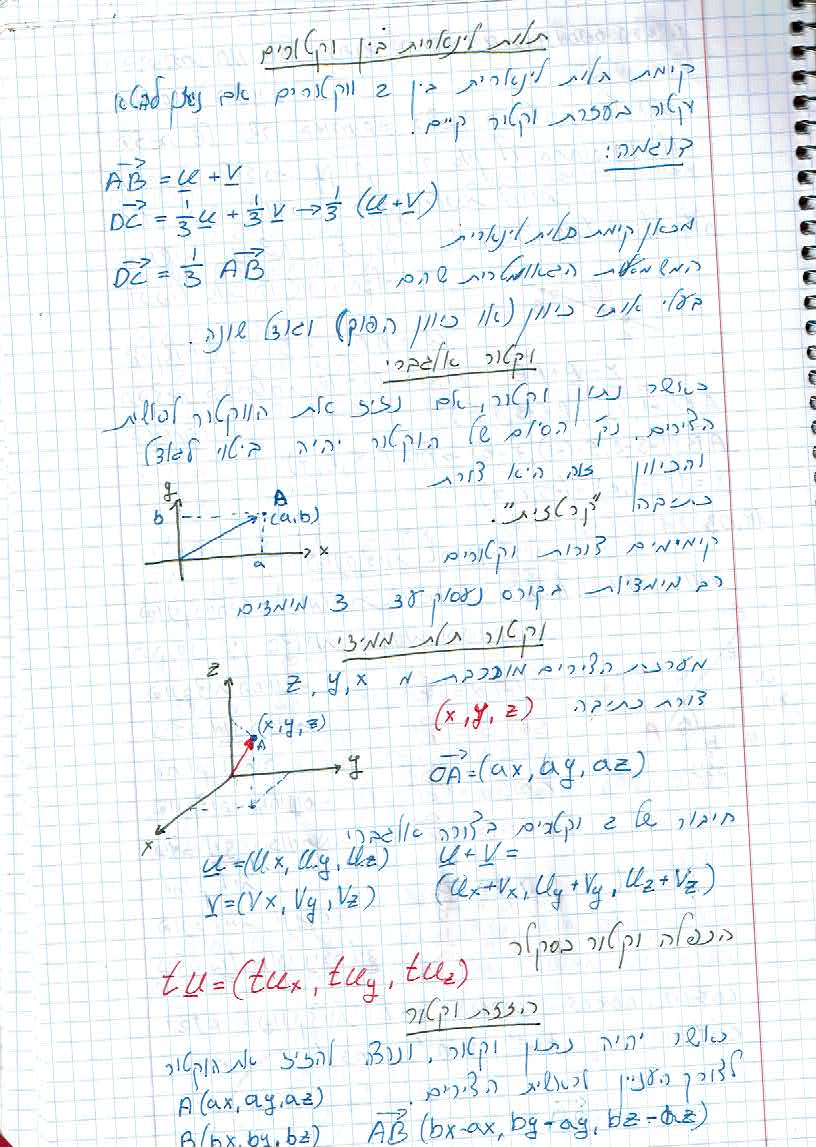 תלות לינארית בין וקטורים
קימת תלות לינארית בין 2 ווקטורים אם ניתן לבטא
וקטור בעזרת וקטור קיים.
דוגמה:
AB = u + v
DC = 1/3 u + 1/3 v → 1/3 (u + v)
מכאן קימת תלות לינארית
DC = 1/3 AB
המשמעות הגאומטרית שהם
בעלי אותו כיוון (או כיוון הפוך) וגודל שונה.
וקטור אלגברי
כאשר נתון וקטור, אם נזיז את הווקטור לראשית
הצירים, נק' הסיום של הוקטור יהיה ביטוי לגודל
והכיוון זה היא צורת
כתיבה "קרטזית".
y
A
b
(a,b)
a
x
קיימים צורות וקטורים
רב מימדיות בקורס נעסוק עד 3 מימדים
וקטור תלת מימדי
מערכת הצירים מורכבת מ x, y, z
צורת כתיבה (x, y, z)
z
(x, y, z)
A
y
x
OA = (ax, ay, az)
חיבור של 2 וקטרים בצורה אלגברי
u = (ux, uy, uz) u + v =
v = (vx, vy, vz) (ux+vx, uy+vy, uz+vz)
הכפלה וקטור בסקלר
tu = (tux, tuy, tuz)
הזזת וקטור
כאשר יהיה נתון וקטור, ונרצה להזיז את הוקטור
לצורך העניין לראשית הצירים.
A(ax, ay, az)
B(bx, by, bz) AB (bx-ax, by-ay, bz-az)